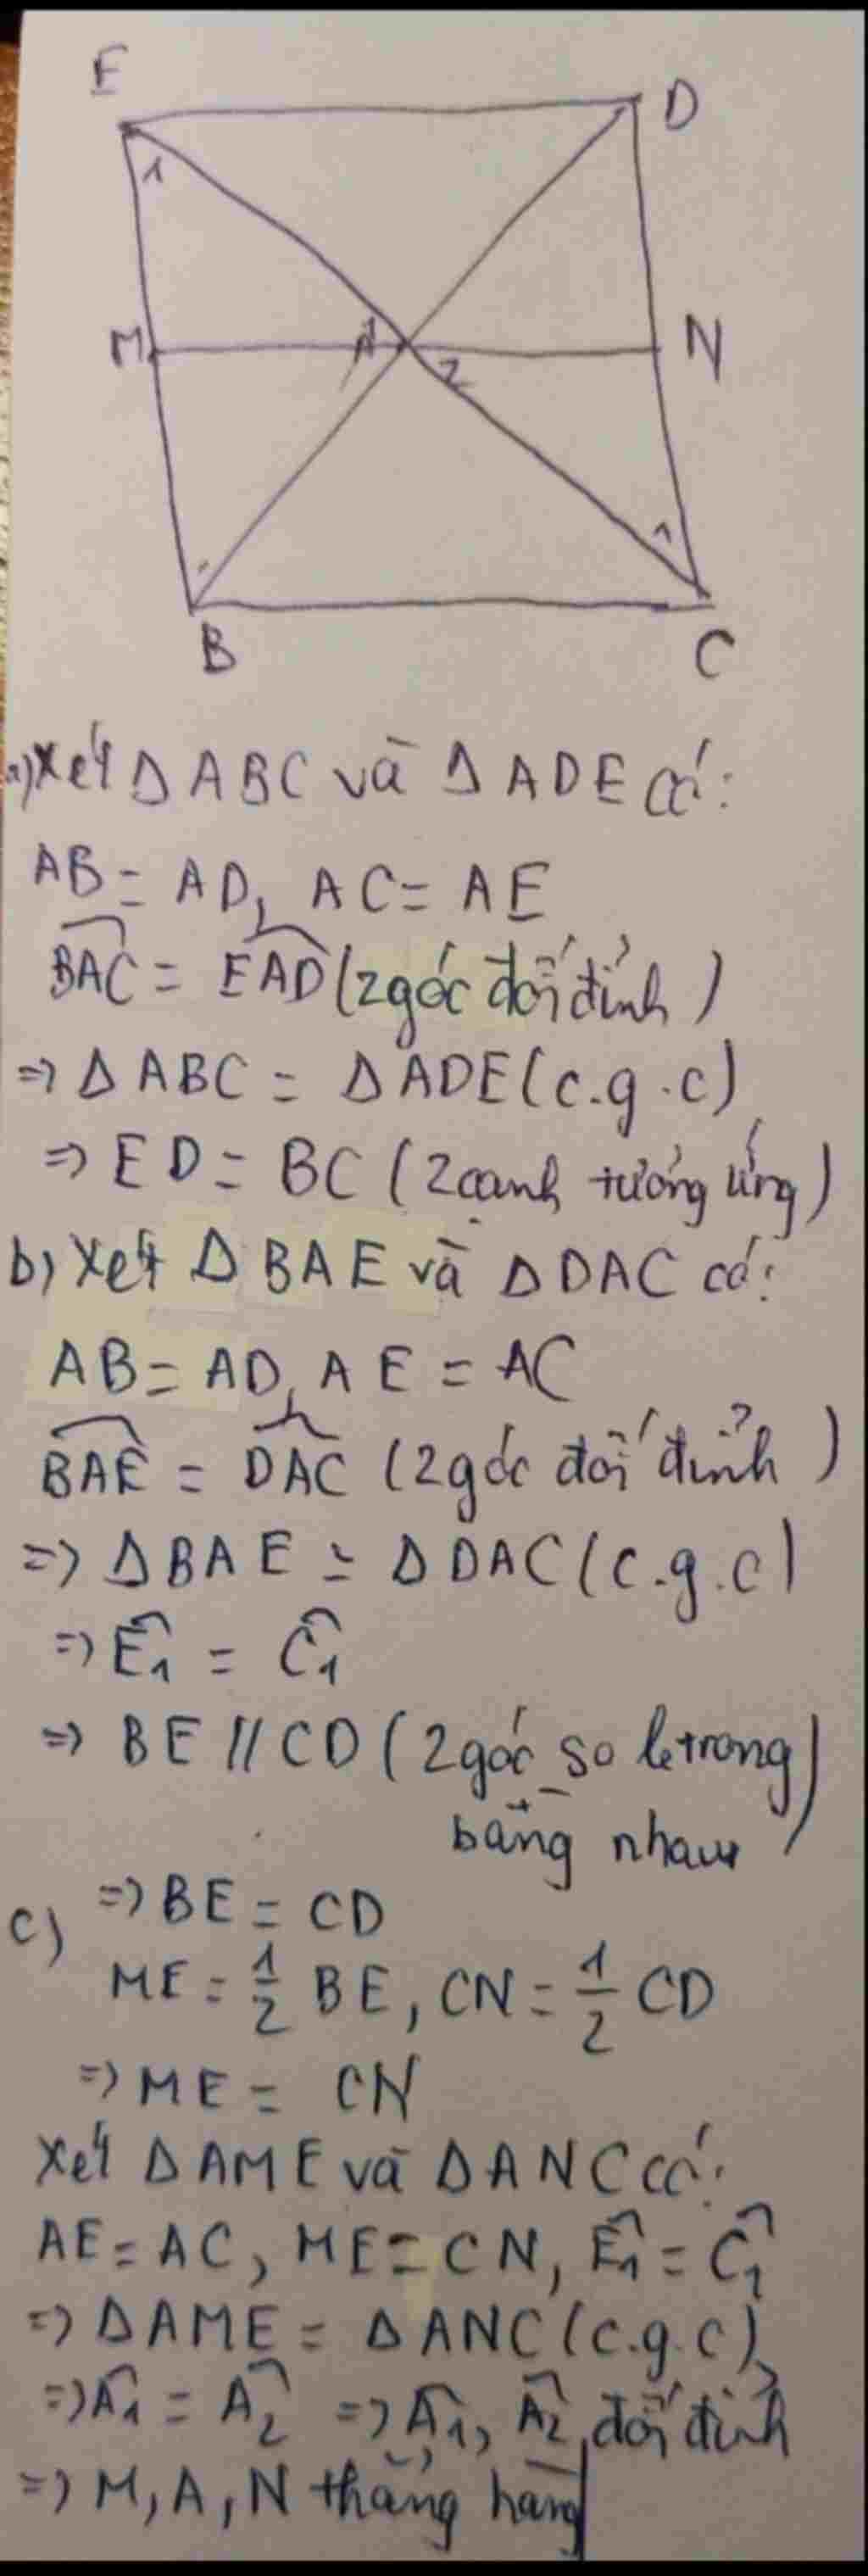 E
D
1
M
A
1
2
N
1
B
C
a) Xét Δ ABC và Δ ADE có:
AB = AD, AC = AE
BAC = EAD (2 góc đối đỉnh)
=> Δ ABC = Δ ADE (c.g.c)
=> ED = BC (2 cạnh tương ứng)
b) Xét Δ BAE và Δ DAC có:
AB = AD, AE = AC
BAE = DAC (2 góc đối đỉnh)
=> Δ BAE = Δ DAC (c.g.c)
=> Ê1 = Ĉ1
=> BE // CD (2 góc so le trong
bằng nhau)
c) => BE = CD
ME = 1/2 BE, CN = 1/2 CD
=> ME = CN
Xét Δ AME và Δ ANC có:
AE = AC, ME = CN, Ê1 = Ĉ1
=> Δ AME = Δ ANC (c.g.c)
=> Â1 = Â2 => Â1, Â2 đối đỉnh
=> M, A, N thẳng hàng